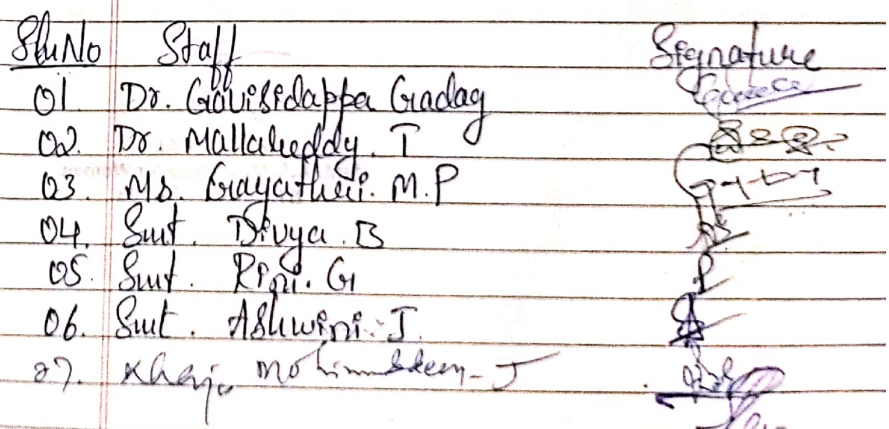 Sl.No Staff Signature
01 Dr. Gavisidappa Gadag
02. Dr. Mallareddy. T
03. Ms. Gayathri. M.P
04. Smt. Divya. B
05. Smt. Rini. G
06. Smt. Ashwini. J
07. Khaja Mohinuddeen - J